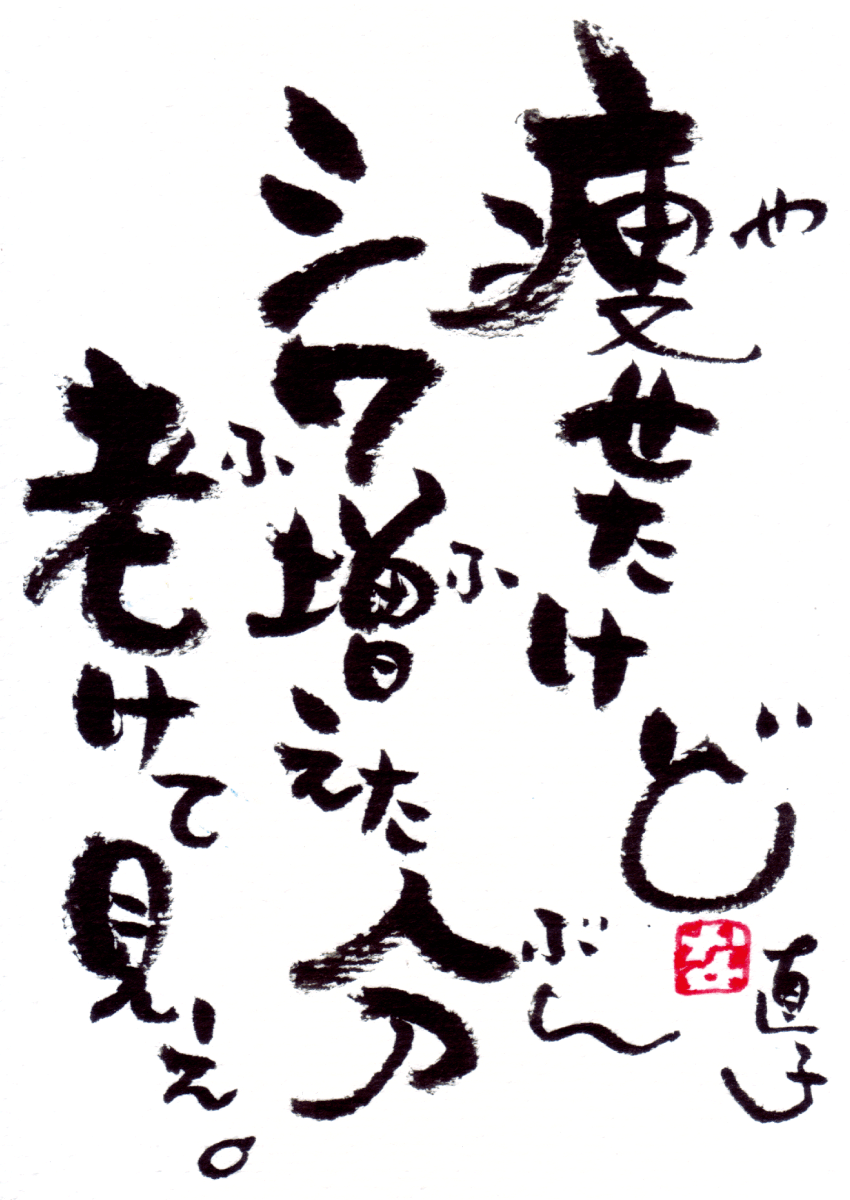 痩せたけど
や
シワ増えた分
ふ
ぶん
老けて見え。
ふ
直子
なお